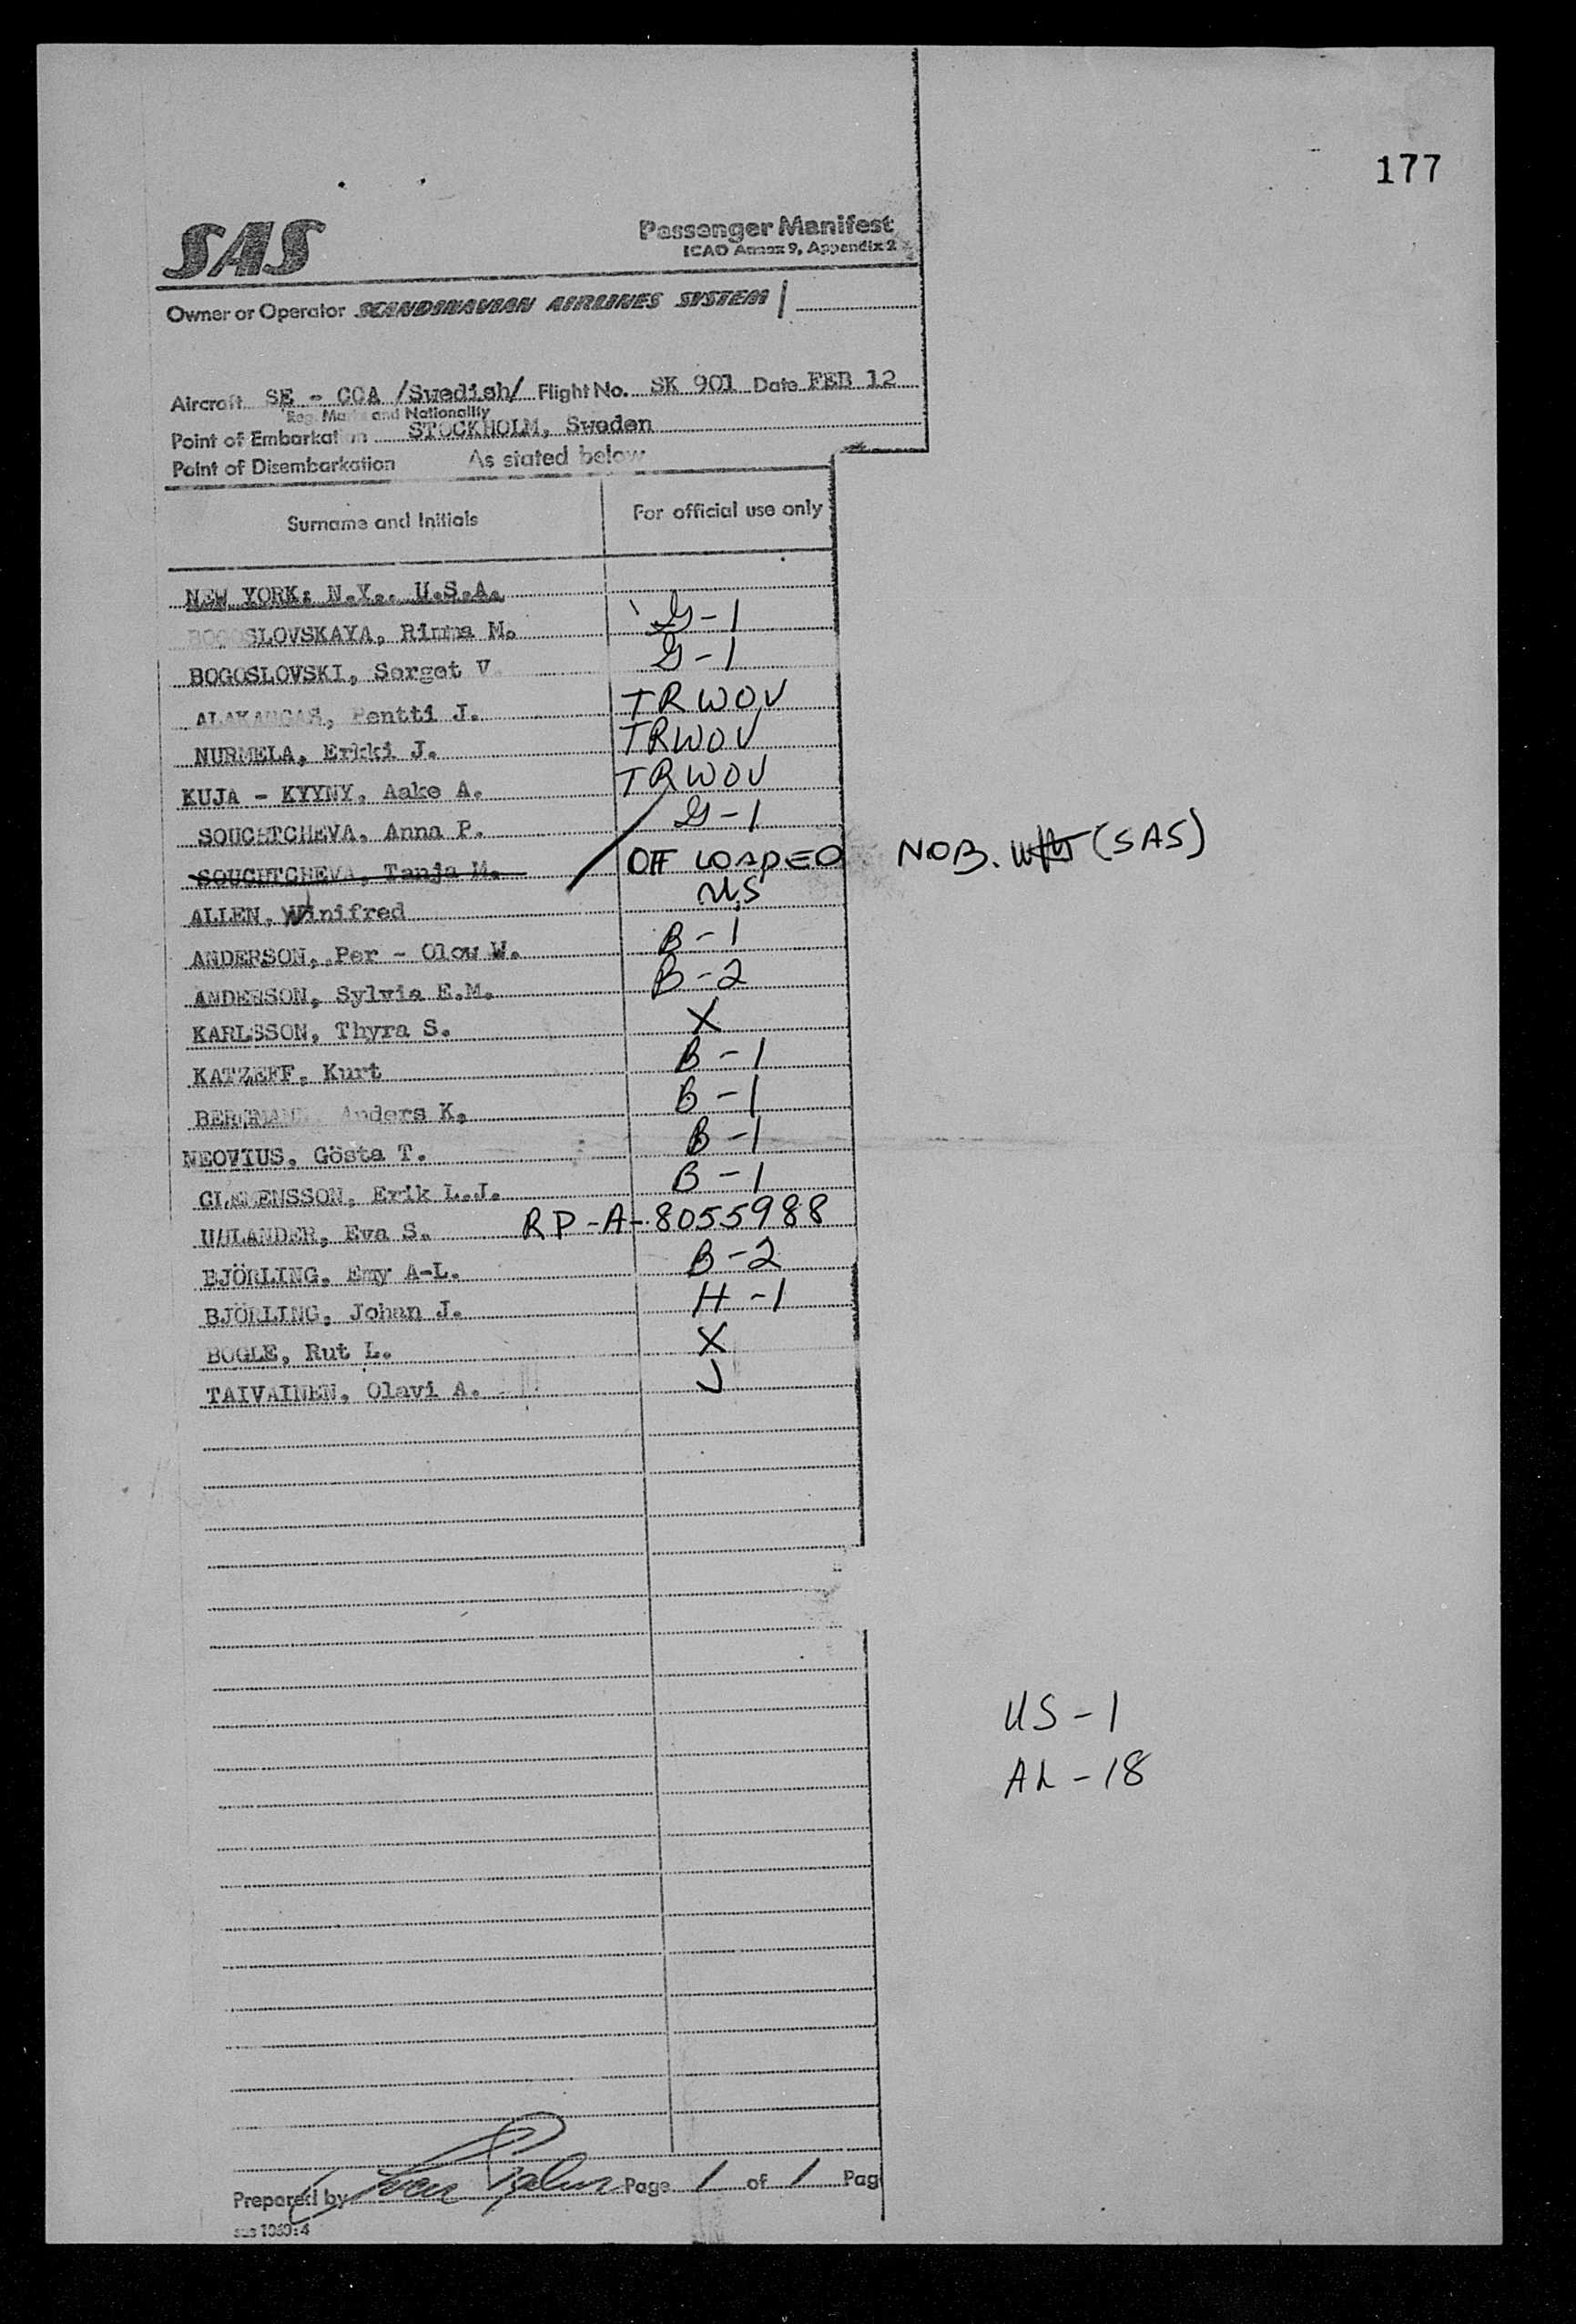 177
SAS
Passenger Manifest
ICAO Annex 9, Appendix 2
Owner or Operator SCANDINAVIAN AIRLINES SYSTEM
Aircraft SE - CCA /Swedish/ Flight No. SK 901 Date FEB 12
Reg. Marks and Nationality
Point of Embarkation STOCKHOLM, Sweden
Point of Disembarkation As stated below
Surname and Initials For official use only
NEW YORK, N.Y., U.S.A.
BOGOSLOVSKAYA, Rimma M. G-1
BOGOSLOVSKI, Serget V. G-1
ALAKANGAS, Pentti J. TRWOV
NURMELA, Erkki J. TRWOV
KUJA - KYYNY, Aake A. TRWOV
SOUCHTCHEVA, Anna P. G-1
SOUCHTCHEVA, Tanja M. OFF LOADED NOB. (SAS)
ALLEN, Winifred U.S
ANDERSON, Per - Olow W. B-1
ANDERSON, Sylvia E.M. B-2
KARLSSON, Thyra S. X
KATZEFF, Kurt B-1
BERGMANN, Anders K. B-1
NEOVIUS, Gösta T. B-1
CLEMENSSON, Erik L.J. B-1
Eva S. RP-A-8055988
BJÖRLING, Emy A-L. B-2
BJÖRLING, Johan J. H-1
BOGLE, Rut L. X
TAIVAINEN, Olavi A. J
US-1
AL-18
Prepared by Page 1 of 1 Pag
sas 1060:4